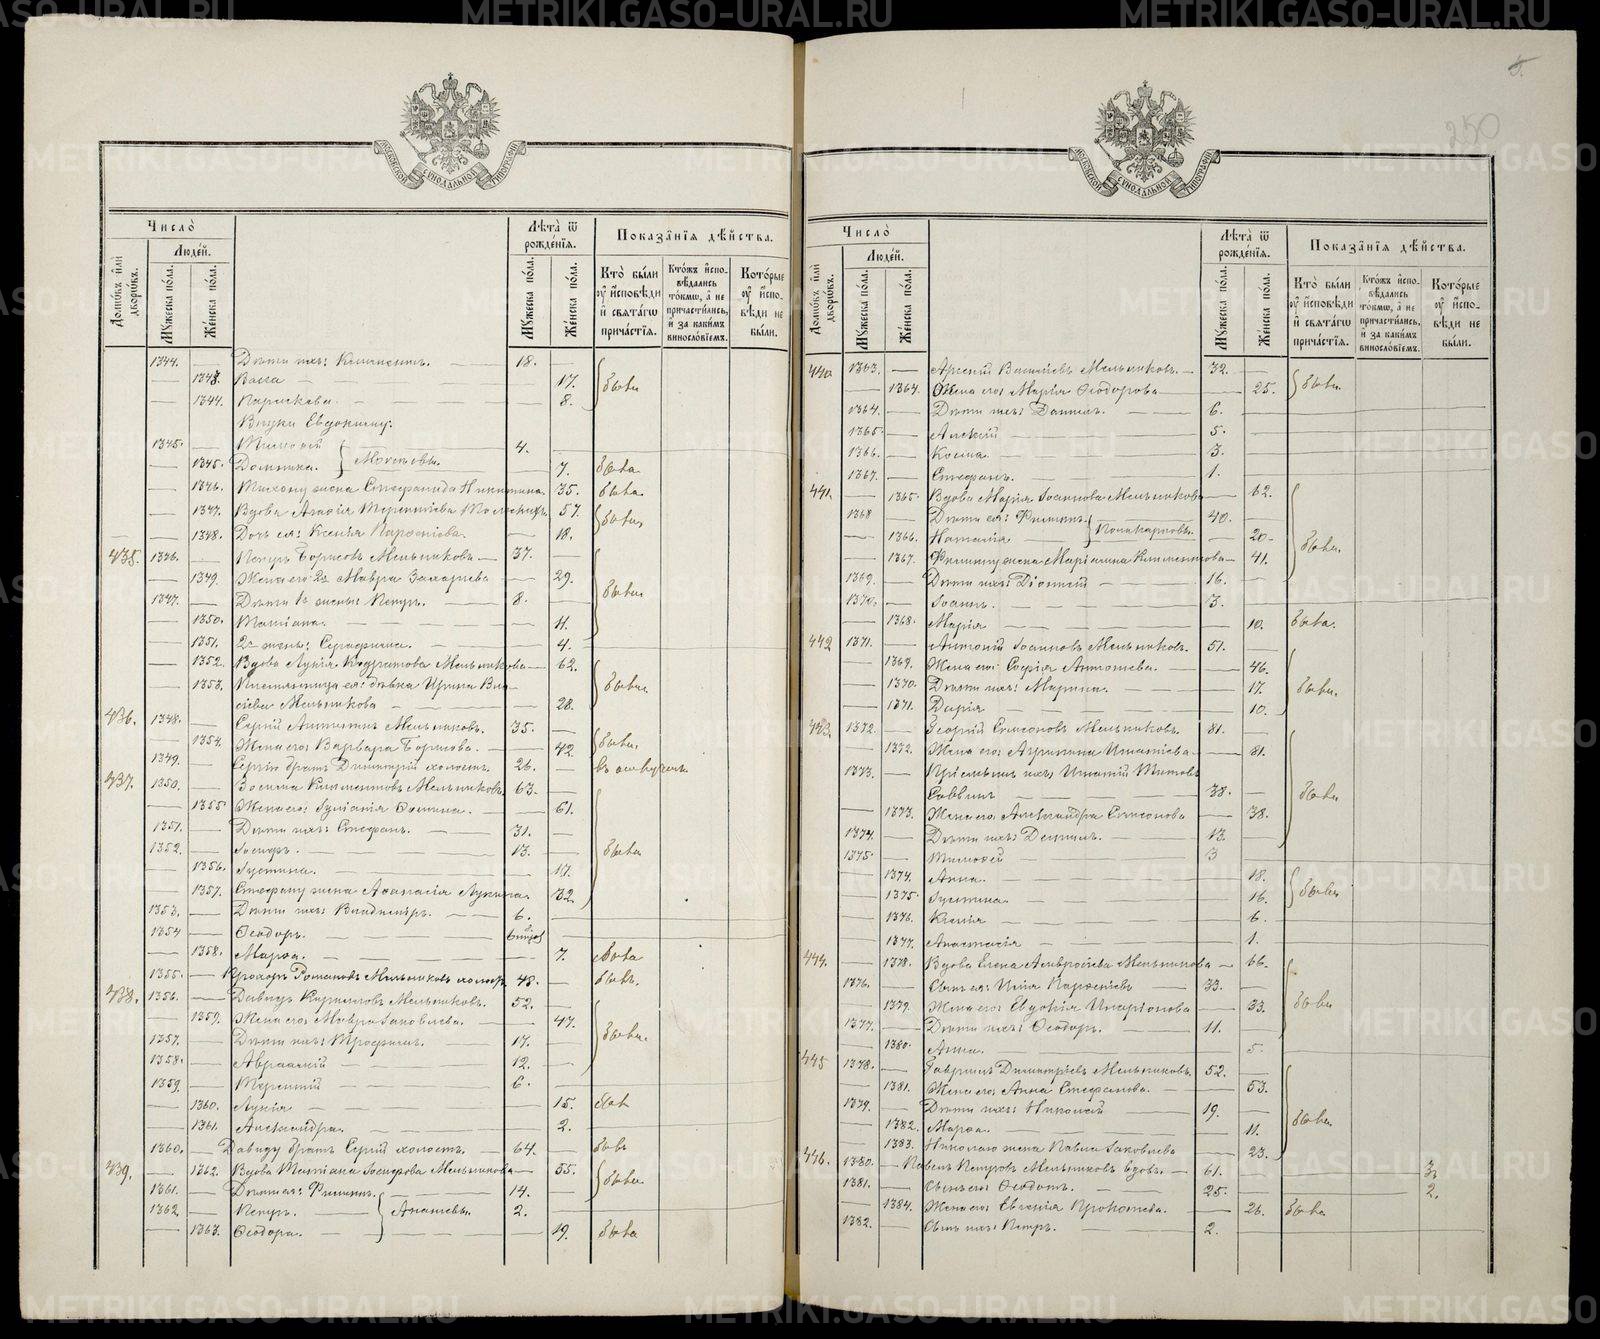 Число̀
Людéй.
Домѡ́въ и҆лѝ дворѡ́въ.
Мꙋ́жеска по́ла.
Жéнска по́ла.
Лѣ́та ѿ рождéнїѧ.
Мꙋ́жеска по́ла.
Жéнска по́ла.
Показа̑нїѧ дѣ́йства.
Ктò бы́ли ᲂу҆ и҆сповѣ́ди и҆ свѧта́гѡ прича́стїѧ.
Кто́жъ и҆спо-вѣ́дались то́кмѡ, а҆ не причасти́лись, и҆ за каки́мъ винослѡ́вїемъ.
Кото́рые ᲂу҆ и҆спо-вѣ́ди не бы́ли.
1344. Дѣти ихъ: Климентъ. 18.
1343. Васса 17. были
1344. Параскева. 8.
Внуки Евдокиму:
1345. Тимоѳей 4.
1345. Домника. Мокѣевы. 7. была
1346. Тихону жена Стефанида Никитина 35. была
1347. Вдова Агафія Терентіева 57. были
1348. Дочь ея: Ксенія Парѳеніева. 18.
435. 1346. Петръ Борисовъ Мельниковъ 37.
1349. Жена его 2я Мавра Захарьева 29. были
1347. Дѣти 1й жены: Петръ. 8.
1350. Татіана. 11.
1351. 2й жены: Серафима. 4.
1352. Вдова Лукія Кодратова Мельникова 62. были
1353. Племянница ея: дѣвка Ирина Вла-
сіева Мельникова 28.
436. 1348. Сергій Антипинъ Мельниковъ. 35. были
1354. Жена его: Варвара Борисова. 42.
1349. Сергію братъ Димитрій холостъ. 26. въ отлучкѣ
437. 1350. Зосима Климентовъ Мельниковъ. 63.
1355 Жена его: Іуліанія Ѳомина. 61.
1351. Дѣти ихъ: Стефанъ. 31.
1352. Іосифъ. 13. были
1356. Іустина. 17.
1357. Стефану жена Аѳанасія Лукина. 32.
1353. Дѣти ихъ: Владиміръ. 6.
1354 Ѳеодоръ. 6 мѣс
1358. Марѳа. 7. была
1355. Прохоръ Романовъ Мельниковъ холостъ 48. былъ.
438. 1356. Давидъ Кирилловъ Мельниковъ. 52.
1359. Жена его: Мавра Іаковлева. 47. были
1357. Дѣти ихъ: Трофимъ. 17.
1358. Авраамій 12.
1359. Терентій 6.
1360. Лукія 15. была
1361. Александра. 2.
1360. Давиду братъ Сергій холостъ. 64. былъ
439. 1362. Вдова Татіана Іосифова Мельникова 55. были
1361. Дѣти ея: Филиппъ. 14.
1362. Петръ. Ананьевы. 2.
1363. Ѳеодора. 19. была
250
Число̀
Людéй.
Домѡ́въ и҆лѝ дворѡ́въ.
Мꙋ́жеска по́ла.
Жéнска по́ла.
Лѣ́та ѿ рождéнїѧ.
Мꙋ́жеска по́ла.
Жéнска по́ла.
Показа̑нїѧ дѣ́йства.
Ктò бы́ли ᲂу҆ и҆сповѣ́ди и҆ свѧта́гѡ прича́стїѧ.
Кто́жъ и҆спо-вѣ́дались то́кмѡ, а҆ не причасти́лись, и҆ за каки́мъ винослѡ́вїемъ.
Кото́рые ᲂу҆ и҆спо-вѣ́ди не бы́ли.
440. 1363. Арсеній Васильевъ Мельниковъ. 32. были
1364. Жена его: Марія Ѳеодорова 25.
1364. Дѣти ихъ: Даниилъ. 6.
1365. Алексій 5.
1366. Косма. 3.
1367. Стефанъ. 1.
441. 1365. Вдова Марія Іоаннова Мельникова 62.
1368 Дѣти ея: Филиппъ. 40.
1366. Наталія Поликарповы. 20. были.
1367. Филиппу жена Маріамна Климентова 41.
1369. Дѣти ихъ: Діонисій 16.
1370. Іоаннъ. 3.
1368. Марія 10. была.
442 1371. Антоній Іоанновъ Мельниковъ. 51.
1369. Жена его: Софія Антоніева. 46. были.
1370. Дѣти ихъ: Марина. 17.
1371. Дарія 10.
443. 1372. Георгій Симеоновъ Мельниковъ. 81.
1372. Жена его: Агрипина Игнатіева 81.
1373. Пріемышъ ихъ: Игнатій Титовъ
Саввинъ 38. были
1373. Жена его: Александра Симеонова 38.
1374. Дѣти ихъ: 13.
1375. Тимоѳей 3
1374. Анна. 18. были
1375. Іустина. 16.
1376. Ксенія 6.
1377. Анастасія 1.
444. 1378. Вдова Елена Амвросіева Мельникова 66.
1376. Сынъ ея: Илія Парѳеніевъ 33. были
1379. Жена его: Евдокія Иларіонова 33.
1377. Дѣти ихъ: Ѳеодоръ. 11.
1380. Анна. 5.
445 1378. Гавріилъ Димитріевъ Мельниковъ. 52.
1381. Жена его: Анна Стефанова. 53.
1379. Дѣти ихъ: Николай 19. были
1382. Марѳа. 11.
1383. Николаю жена Павла Іаковлева 23.
446. 1380. Павелъ Петровъ Мельниковъ вдовъ. 61. 3.
1381. Сынъ его: Ѳеодотъ. 25. 2.
1384. Жена его: Евгенія Прокопьева. 26. была
1382. Сынъ ихъ: Петръ. 2.